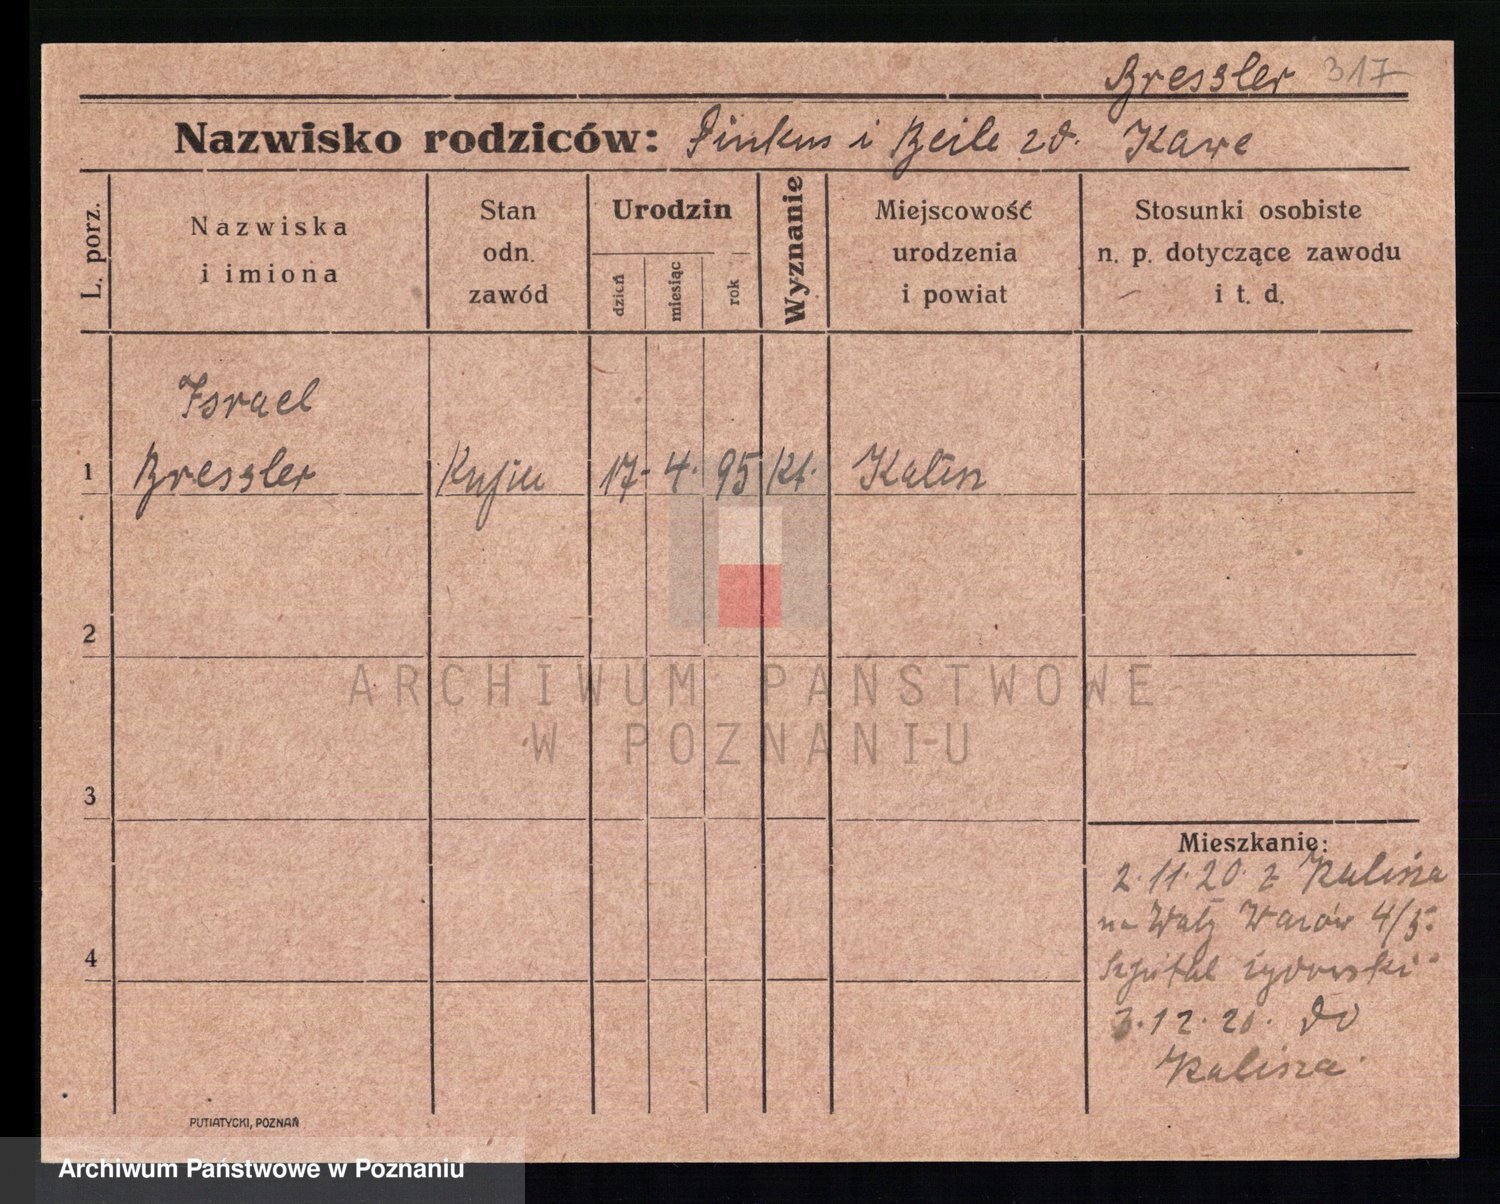 Bressler 317
Nazwisko rodziców: Pinkus i Beile zd. Kawe
L. porz.
Nazwiska
i imiona
Stan
odn.
zawód
Urodzin
dzień
miesiąc
rok
Wyznanie
Miejscowość
urodzenia
i powiat
Stosunki osobiste
n. p. dotyczące zawodu
i t. d.
Israel
1 Bressler Kupiec 17. 4. 95 Kalisz
2
3
4
Mieszkanie:
2.11.20. z Kalisza
na Wały Wazów 4/5.
Szpital żydowski
3.12.20. do
Kalisza.
PUTIATYCKI, POZNAŃ
ARCHIWUM PAŃSTWOWE
W POZNANIU
Archiwum Państwowe w Poznaniu